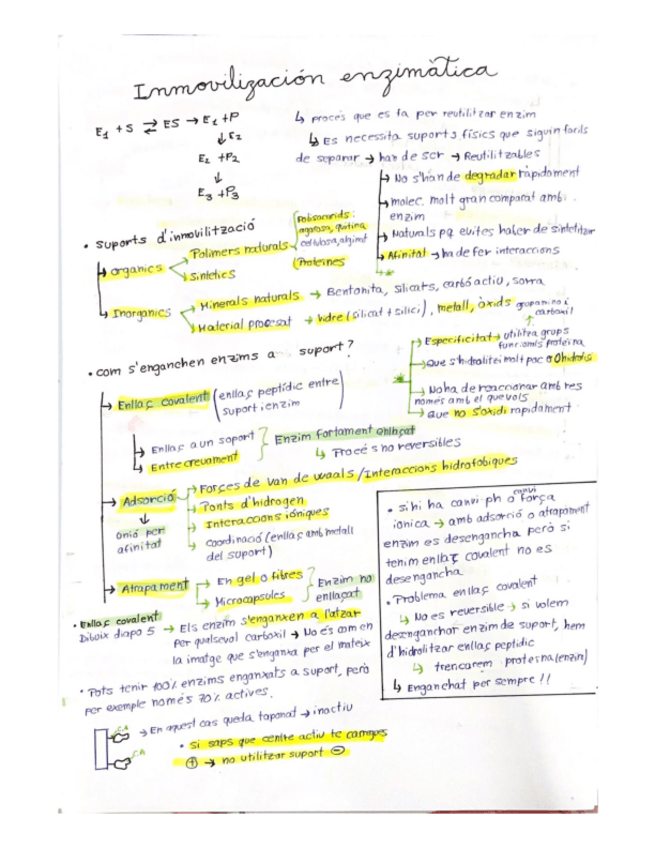 Inmovilización enzimàtica
E1 + S ⇄ ES → E1 + P
↓ E2
E2 + P2
↓
E3 + P3
↳ procés que es fa per reutilitzar enzim
↳ Es necessita suports físics que siguin fàcils
de separar → han de ser → Reutilitzables
↳ No s'han de degradar ràpidament
↳ molec. molt gran comparat amb
enzim
↳ Naturals pq evites haber de sintetitzar
↳ Afinitat → ha de fer interaccions
↳ *
• suports d'inmovilització
↳ organics
Polimers naturals
Polisacarids:
agarosa, quitina
celulosa, alginat
(Proteïnes
Sintetics
↳ Inorganics
Minerals naturals → Bentonita, Silicats, carbó actiu, sorra
Material procesat → vidre (silicat + silici), metall, òxids
grup amino i
carboxil
* ↳ Especificitat → utilitza grups
funcionals proteïna
↳ Que s'hidrolitzi molt poc o 0 hidrolisi
↳ No ha de reaccionar amb res
només amb el que vols
↳ Que no s'oxidi rapidament
• com s'enganchen enzims a suport?
↳ Enllaç covalent (enllaç peptídic entre
suport i enzim)
↳ Enllaç a un soport
↳ Entrecreuament
Enzim fortament enllaçat
↳ Procés no reversibles
↳ Adsorció
↓
unió per
afinitat
→ Forçes de Van de waals / Interaccions hidrofobiques
→ Ponts d'hidrogen
→ Interaccions iòniques
→ Coordinació (enllaç amb metall
del suport)
↳ Atrapament
→ En gel o fibres
→ Microcapsules
Enzim no
enllaçat
• si hi ha canvi ph o canvi força
ionica → amb adsorció o atrapament
enzim es desengancha però si
tenim enllaç covalent no es
desengancha
• Problema enllaç covalent
↳ No es reversible → si volem
desenganchar enzim de suport, hem
d'hidrolitzar enllaç peptidic
↳ trencarem proteïna (enzim)
↳ Enganchat per sempre !!
• Enllaç covalent
Dibuix diapo 5 → Els enzim s'enganxen a l'atzar
Per qualsevol carboxil → No és com en
la imatge que s'enganxa per el mateix
• Pots tenir 100% enzims enganxats a suport, però
per exemple només 70% actives.
C.A
C.A
→ En aquest cas queda taponat → inactiu
• si saps que centre actiu te carregues
⊕ → no utilitzar suport ⊖